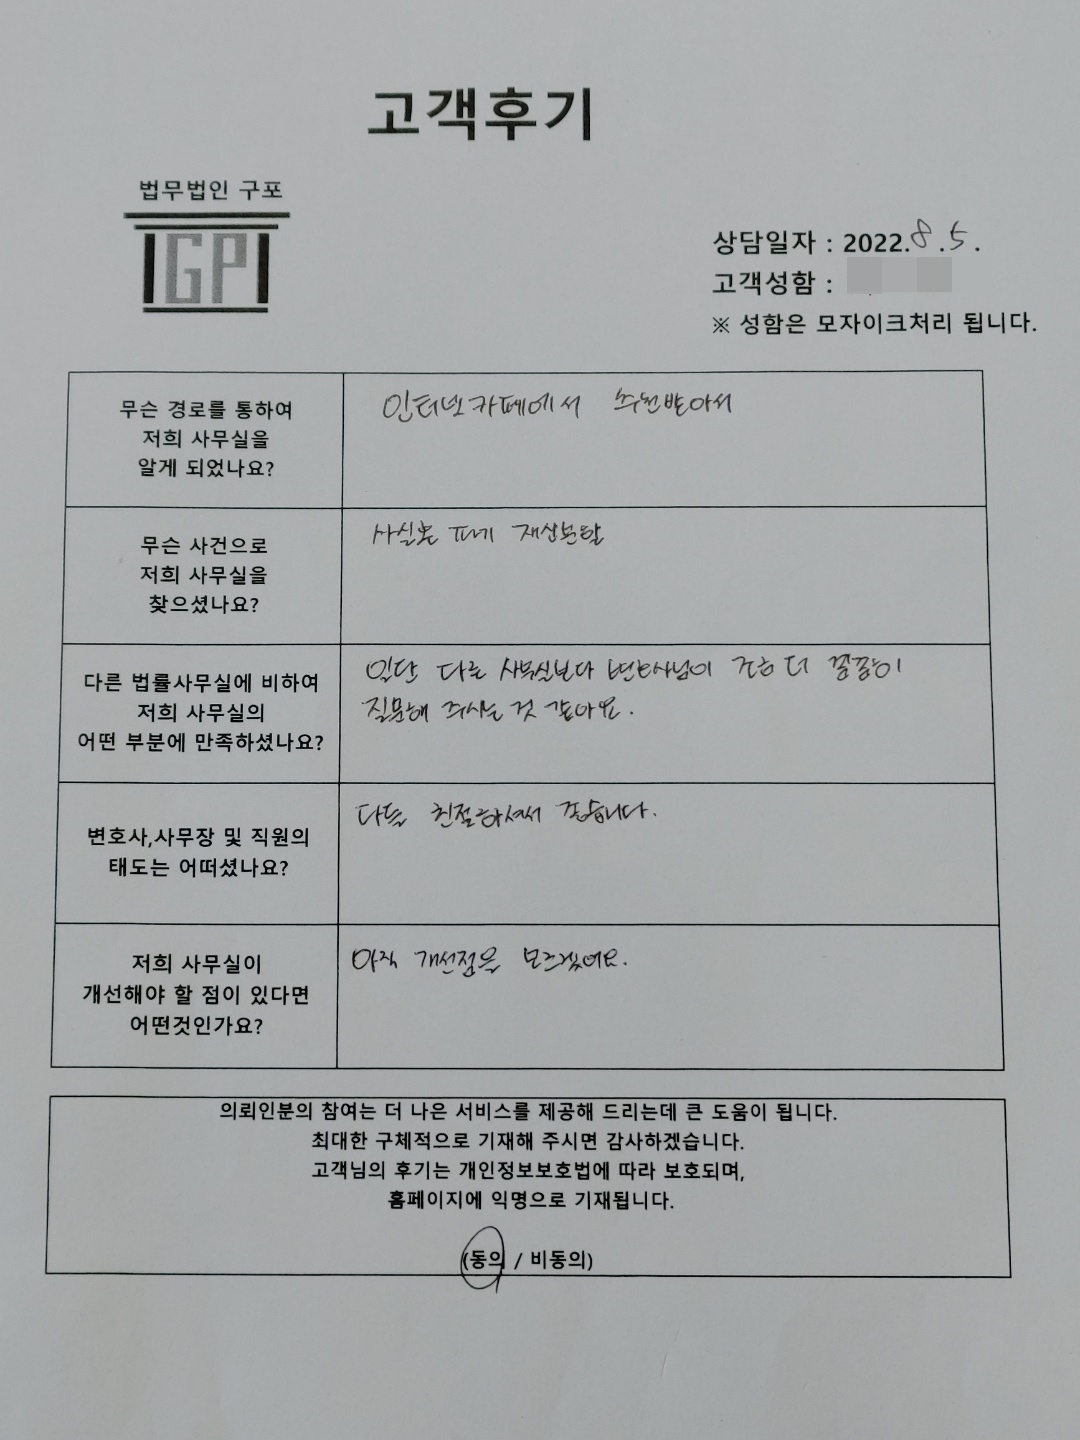 고객후기
법무법인 구포
GP
상담일자 : 2022.8.5.
고객성함 :
※ 성함은 모자이크처리 됩니다.
무슨 경로를 통하여
저희 사무실을
알게 되었나요?
인터넷 카페에서 추천받아서
무슨 사건으로
저희 사무실을
찾으셨나요?
사실혼 파기 재산분할
다른 법률사무실에 비하여
저희 사무실의
어떤 부분에 만족하셨나요?
일단 다른 사무실보다 변호사님이 조금 더 꼼꼼히
질문해 주시는 것 같아요.
변호사,사무장 및 직원의
태도는 어떠셨나요?
다들 친절하셔서 좋습니다.
저희 사무실이
개선해야 할 점이 있다면
어떤것인가요?
아직 개선점은 모르겠어요.
의뢰인분의 참여는 더 나은 서비스를 제공해 드리는데 큰 도움이 됩니다.
최대한 구체적으로 기재해 주시면 감사하겠습니다.
고객님의 후기는 개인정보보호법에 따라 보호되며,
홈페이지에 익명으로 기재됩니다.
(동의 / 비동의)